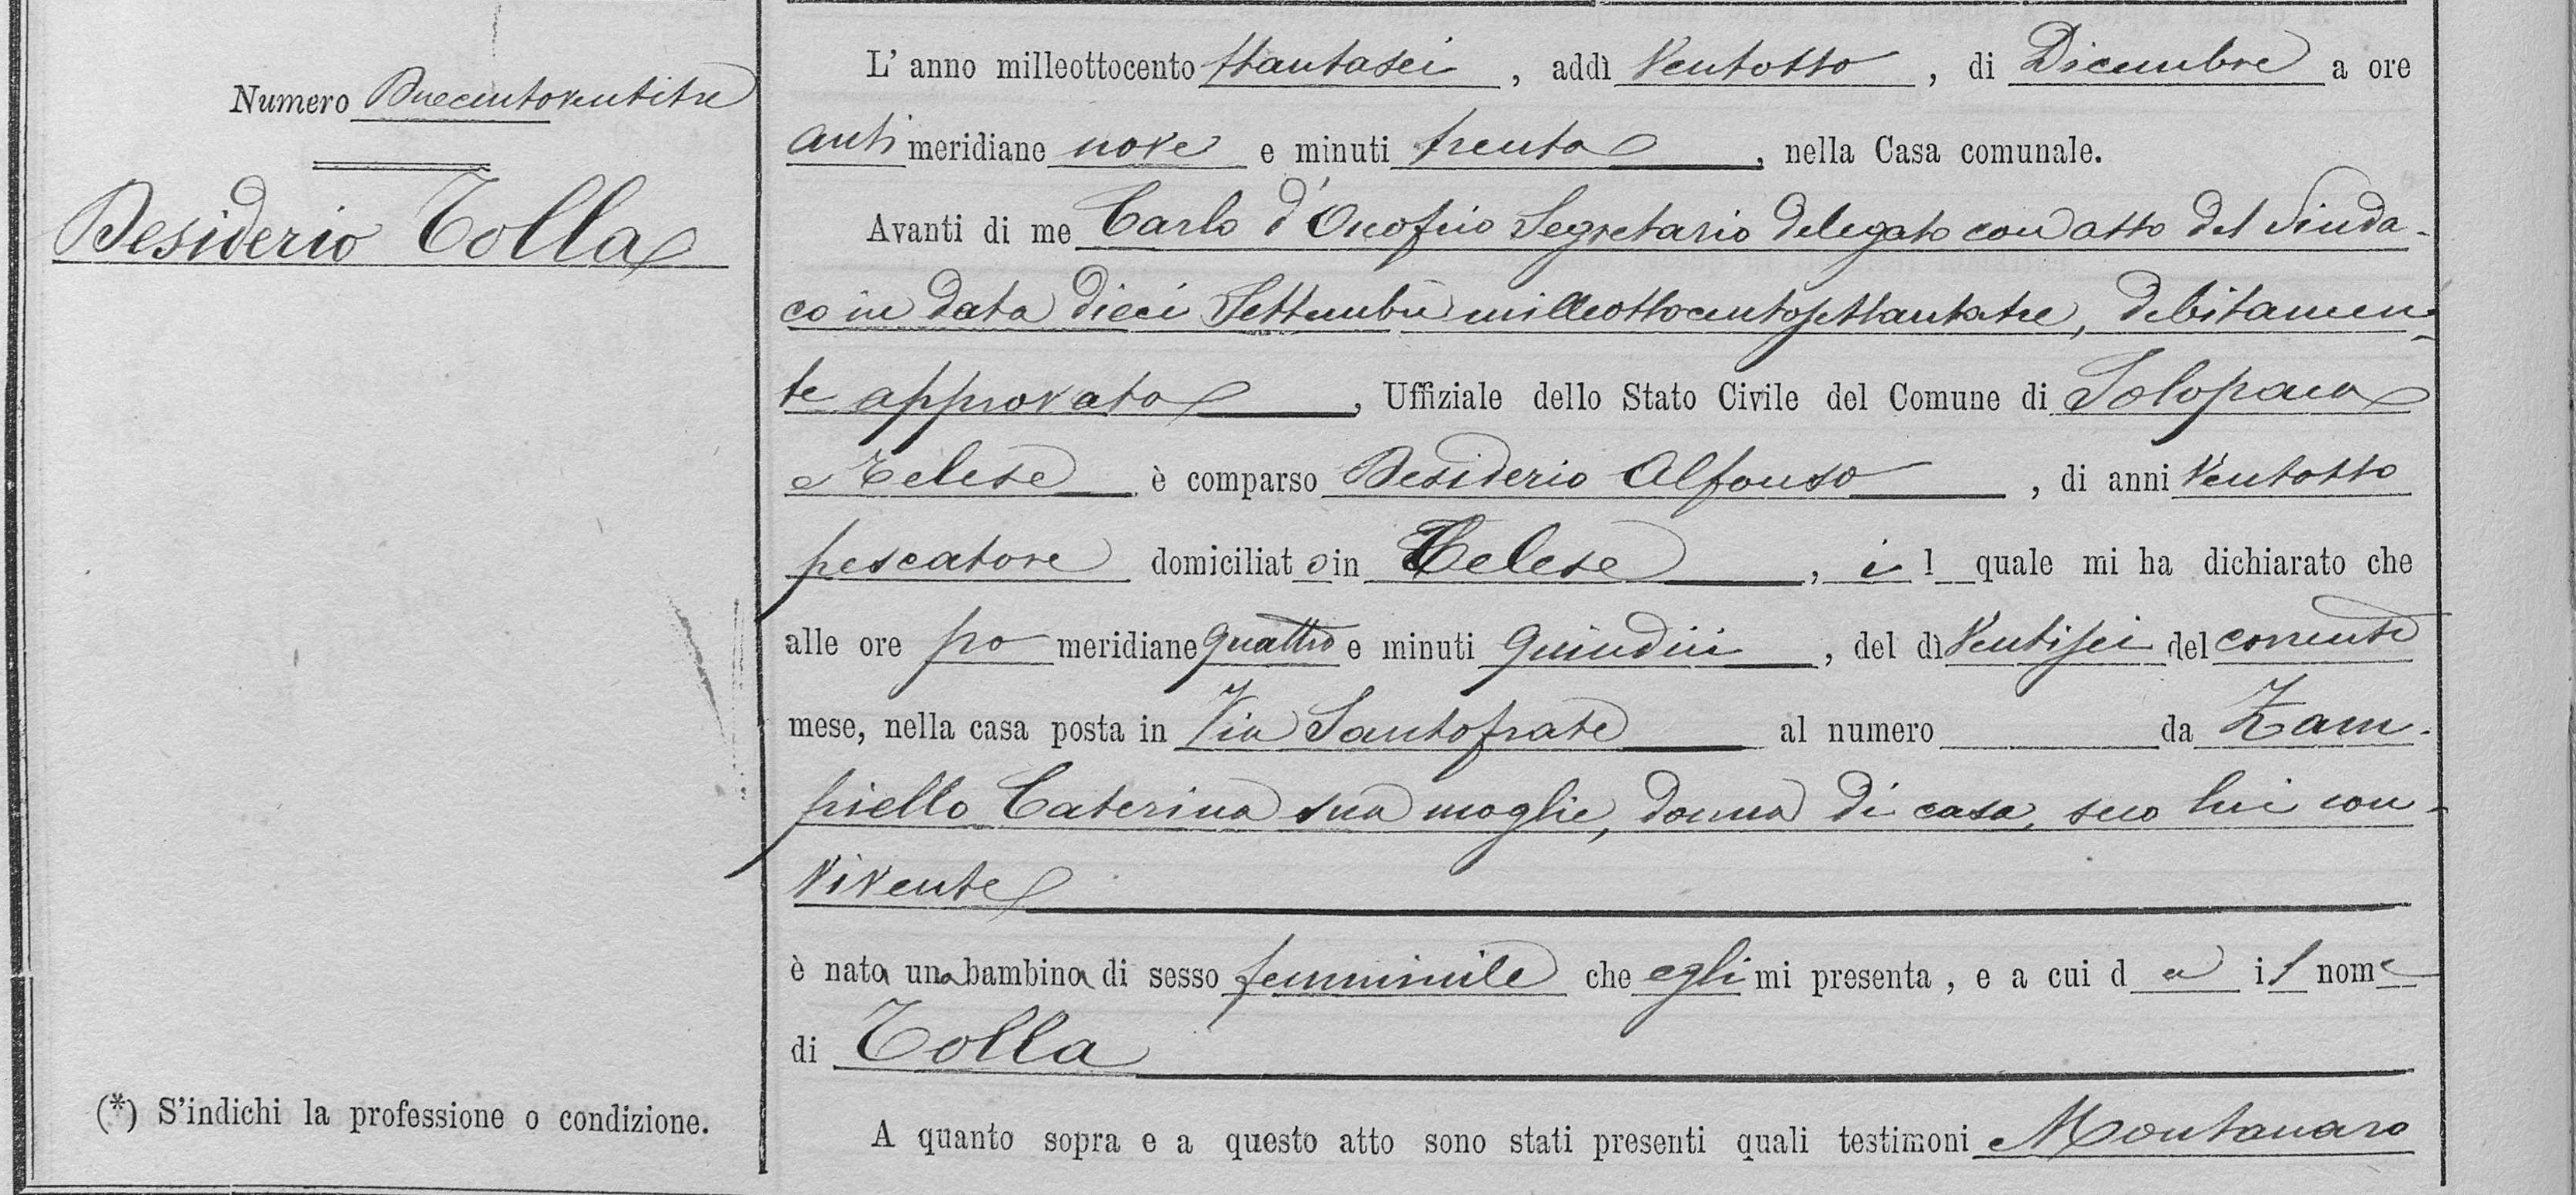 Numero Duecentoventitre
Desiderio Tolla
(*) S'indichi la professione o condizione.
L' anno milleottocento ttantasei, addì Ventotto, di Dicembre a ore
anti meridiane nove e minuti trenta, nella Casa comunale.
Avanti di me Carlo d'Onofrio Segretario delegato con atto del Sinda-
co in data dieci Settembre milleottocentosettantatre, debitamen-
te approvato, Uffiziale dello Stato Civile del Comune di Solopaca
e Telese è comparso Desiderio Alfonso, di anni Ventotto
pescatore domiciliato in Telese, il quale mi ha dichiarato che
alle ore po meridiane quattro e minuti quindici, del dì Ventisei del corrente
mese, nella casa posta in Via Santofrate al numero da Zam-
piello Caterina sua moglie, donna di casa, seco lui con-
vivente
è nata una bambina di sesso femminile che egli mi presenta, e a cui da il nome
di Tolla
A quanto sopra e a questo atto sono stati presenti quali testimoni Montanaro